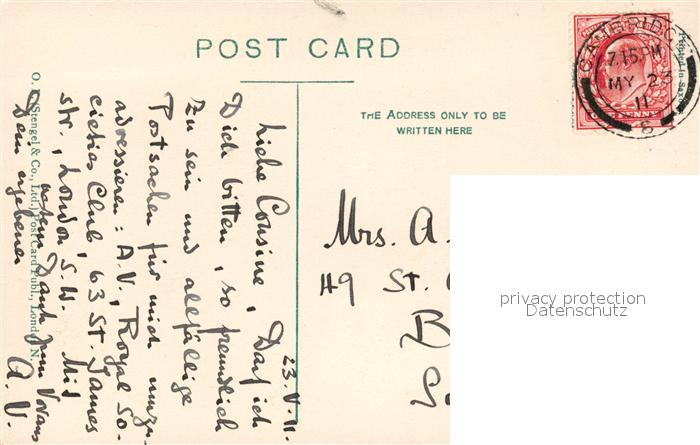 POST CARD
THE ADDRESS ONLY TO BE
WRITTEN HERE
Printed in Saxony
CAMBRIDGE
7.15 PM
MY 23
11
PENNY
O. Stengel & Co., Ltd., Post Card Publ., London N.
23.V.11.
Liebe Cousine, Darf ich
Dich bitten, so freundlich
zu sein und allfällige
Postsachen für mich umzu-
adressieren: A.V., Royal So-
cieties Club, 63 St. James
Str., London, S.W. Mit
Dank zum Voraus
Dein ergebener A.V.
Mrs. A.
49 St.
B
privacy protection
Datenschutz